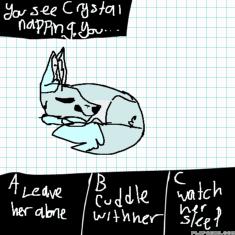 you see Crystal
napping. you...
A Leave
her alone
B
cuddle
with her
C
watch
her
sleep
FLIPNOTE.COM